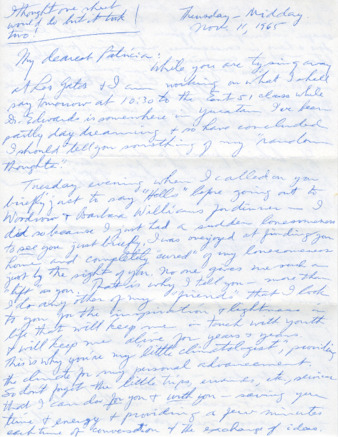 I thought one sheet
would do but it took
two
Thursday - Midday
Nov. 11, 1965
My dearest Patricia:
While you are typing away
at Los Gatos & I am working on what I shall
say tomorrow at 10:30 to the East 51 class while
Dr. Edwards is somewhere in I've been
partly day dreaming & so have concluded
I should tell you something of my "random
thoughts"
Tuesday evening when I called on you
briefly just to say "Hello" before going out to
& Barbara Williams for dinner — I
did so because I just had a sudden lonesomeness
to see you just briefly. I was overjoyed at finding you
home and completely cured of my lonesomeness
just by the sight of you. No one gives me such a
"lift" as you. That is why I told you — more than
I do any other of my "friends" that I look
to you for the inspiration & lightness in
life that will keep me in touch with youth
& will keep me alive for years & years.
This is why you're my little climatologist, providing
the climate for my personal advancement.
So don't forget the little trips, etc, services
that I can do for you & with you — saving your
time & energy & providing a few minutes
each time of conversation & the exchange of ideas.